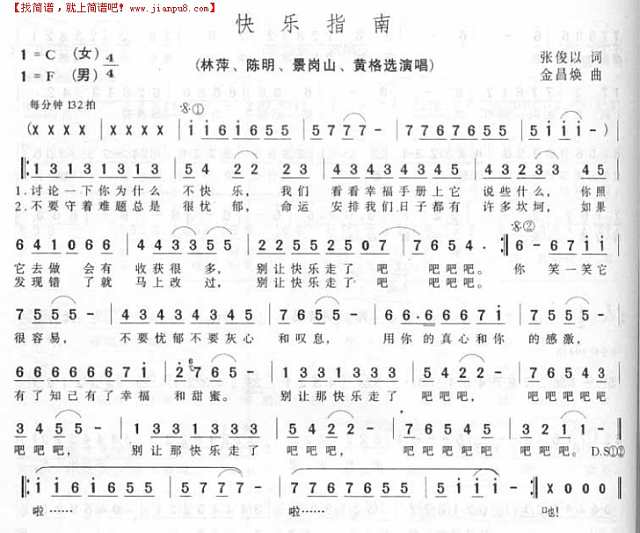 【找简谱，就上简谱吧! www.jianpu8.com】
快乐指南
1=C (女) 4/4
1=F (男)
(林萍、陈明、景岗山、黄格选演唱)
张俊以 词
金昌焕 曲
每分钟 132 拍
𝄋①
(X X X X | X X X X | i i 6 i 6 5 5 | 5 7 7 7 - | 7 7 6 7 6 5 5 | 5 i i i - )
1 3 1 3 1 3 1 3 | 5 4 2 2 | 2 3 2 3 4 3 4 3 | 2 3 3 3 4 5
1.讨论一下你为什么 不快乐， 我们 看看幸福手册上它 说些什么，你照
2.不要守着难题总是 很忧郁， 命运 安排我们日子都有 许多坎坷，如果
𝄋②
6 4 1 0 6 6 | 4 4 3 3 5 5 | 2 2 5 5 2 5 0 7 | 6 7 6 5 4 . 6 - 6 7 i i
它去做 会有 收获很多， 别让快乐走了 吧 吧吧吧。 你 笑一笑它
发现错 了就 马上改 过， 别让快乐走了 吧 吧吧吧。
7 5 5 5 - | 4 3 4 3 4 3 4 5 | 4 3 5 5 5 - | 6 6 . 6 6 6 7 i | 7 5 5 5 5 -
很容易， 不要忧郁不要灰心 和叹息， 用你 的真心和你 的感激，
6 6 6 6 6 6 7 i | 2 7 6 5 - | 1 3 3 1 3 3 1 | 5 4 5 5 - | 1 3 3 1 3 3 1
有了知己有了幸福 和甜蜜。 别让那快乐走了 吧吧吧， 吧吧吧吧吧吧吧
3 4 5 5 - | 1 3 3 1 3 3 1 | 5 4 2 2 - | 1 3 3 1 3 3 1 | 3 4 5 5 -
吧吧吧， 别让那快乐走了 吧吧吧， 吧吧吧吧吧吧吧 吧吧吧。 D.S①②
i i 6 i 6 5 5 | 5 7 7 7 - | 7 7 6 7 6 5 5 | 5 i i i - | X 0 0 0
啦…… 啦…… 吔!